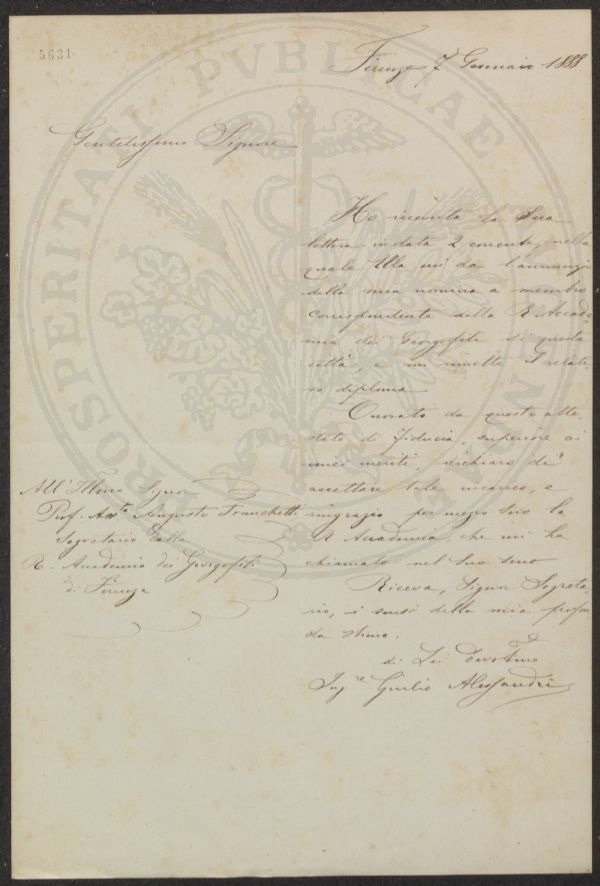 5631
Firenze 7 Gennaio 1888
Gentilissimo Signore
Ho ricevuta la Sua
lettera in data 2 corrente, nella
quale Ella mi dà l'annunzio
della mia nomina a membro
corrispondente della R. Accade
mia dei Georgofili di questa
città, e mi rimette il relati
vo diploma
Onorato da questo atte
stato di fiducia, superiore ai
miei meriti, dichiaro di
accettare tale incarico, e
ringrazio per mezzo Suo la
R. Accademia, che mi ha
chiamato nel Suo seno
Riceva, Signor Segreta-
rio, i sensi della mia profon
da stima.
di Lei Devotmo
Inge Giulio Alessandri
All' Illmo Signor
Prof. Augusto Franchetti
Segretario della
R. Accademia dei Georgofili
di Firenze
PROSPERITATI PVBLICAE